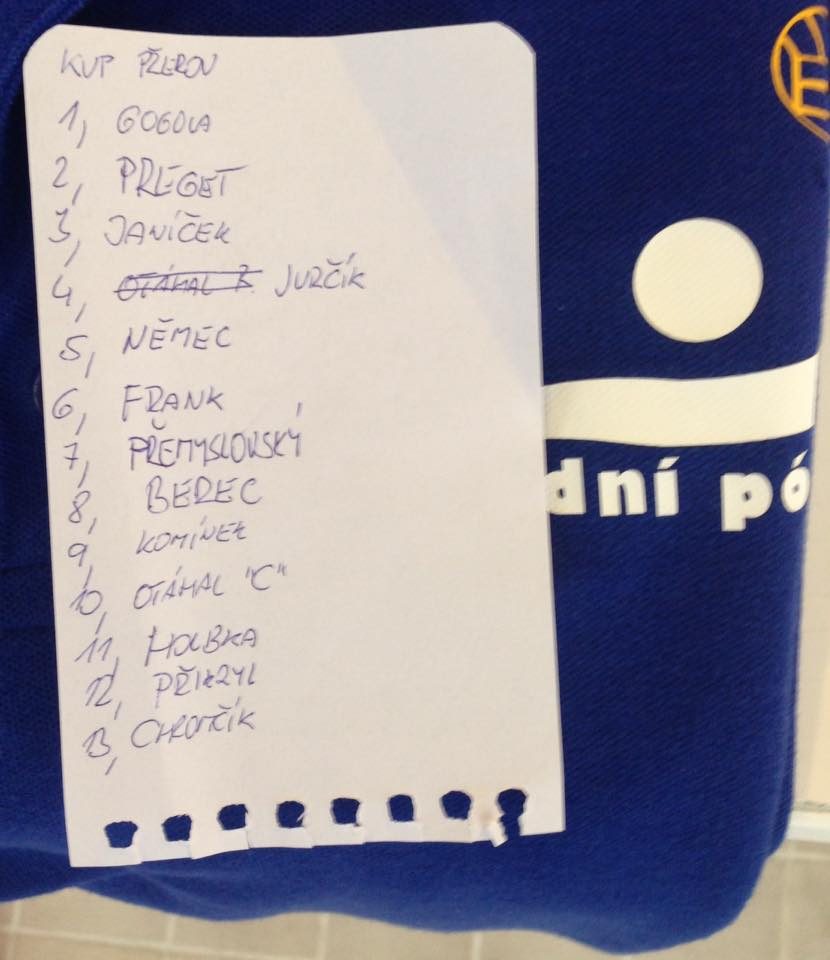 KUP PŘEROV
1, GOGOLA
2, PREGET
3, JANÍČEK
4, OTÁHAL B. JURČÍK
5, NĚMEC
6, FRANK
7, PŘEMYSLOVSKÝ
8, BEREC
9, KOMÍNEK
10, OTÁHAL "C"
11, HOLBKA
12, PŘIKRYL
13, CHROMČÍK
dní pó